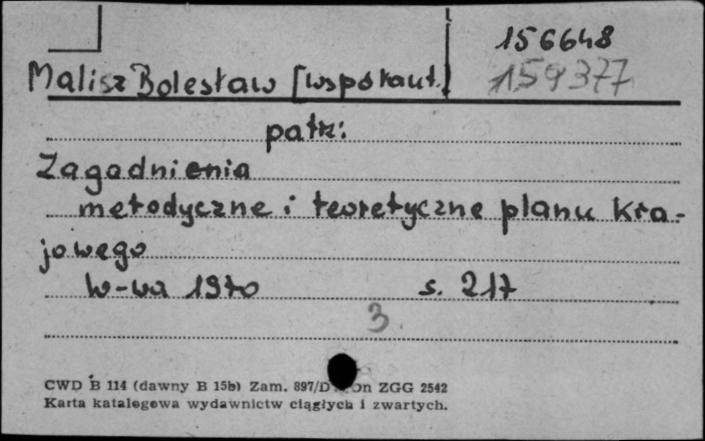 156648
Malisz Bolesław [współaut.] 159377
patrz:
Zagadnienia
metodyczne i teoretyczne planu kra-
jowego
W-wa 1970 s. 217
3
CWD B 114 (dawny B 15b) Zam. 897/D ZGG 2542
Karta katalogowa wydawnictw ciągłych i zwartych.